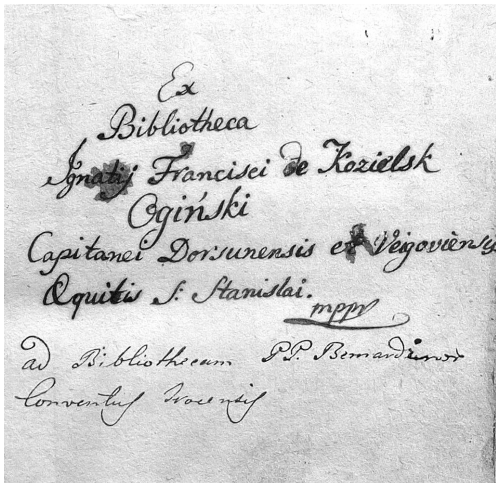 Ex
Bibliotheca
Ignatij Francisci de Kozielsk
Ogiński
Capitanei Dorsunensis et Veigoviensis
Equitis S. Stanislai.
mppr
ad Bibliothecam P.P. Bernardinor
Conventus Trocensis